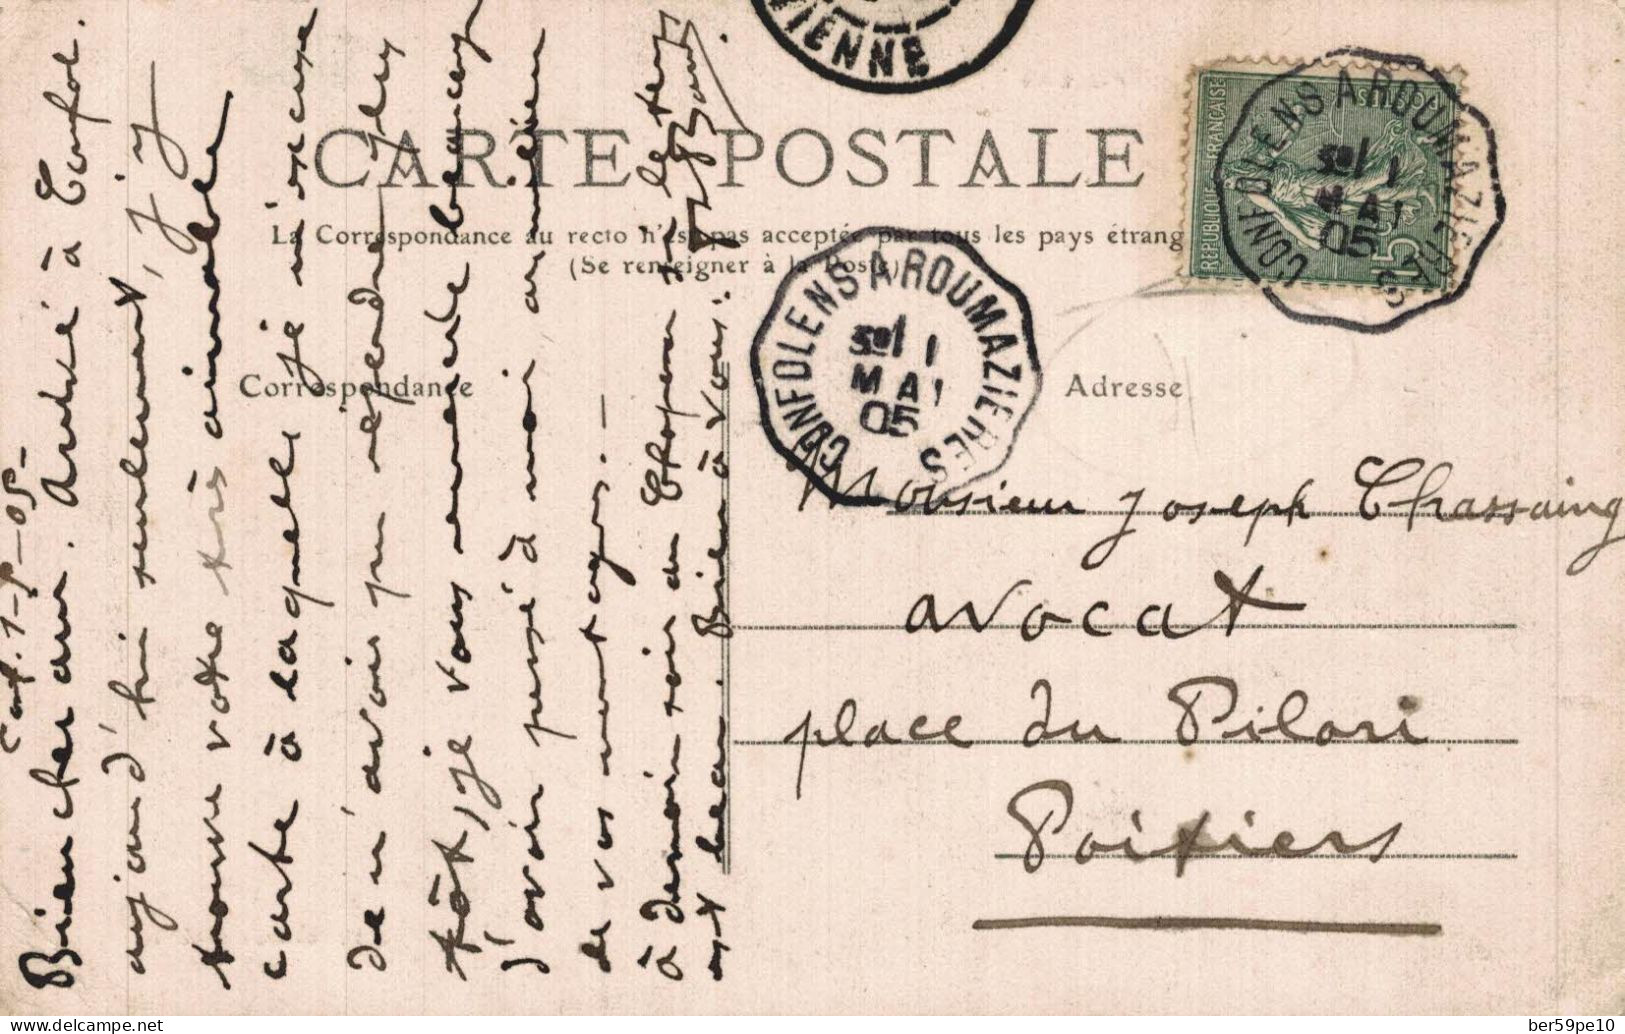 VIENNE
CARTE POSTALE
La Correspondance au recto n'est pas acceptée par tous les pays étrang
(Se renseigner à la Poste)
Correspondance
Adresse
REPUBLIQUE FRANÇAISE
POSTES
15
CONFOLENS A ROUMAZIERES
1
MAI
05
CONFOLENS A ROUMAZIERES
1
MAI
05
Monsieur Joseph Chassaing
avocat
place du Pilori
Poitiers
Conf. 1-5-05-
Bien cher ami. Arrivé à Confol.
aujourd'hui seulement, j'y
trouve votre très aimable
carte à laquelle je m'excuse
de n'avoir pu répondre plus
tôt, je vous remercie beaucoup
d'avoir pensé à moi au milieu
de vos
à demain soir au le temps
est beau. Bien à vous.
delcampe.net
ber59pe10